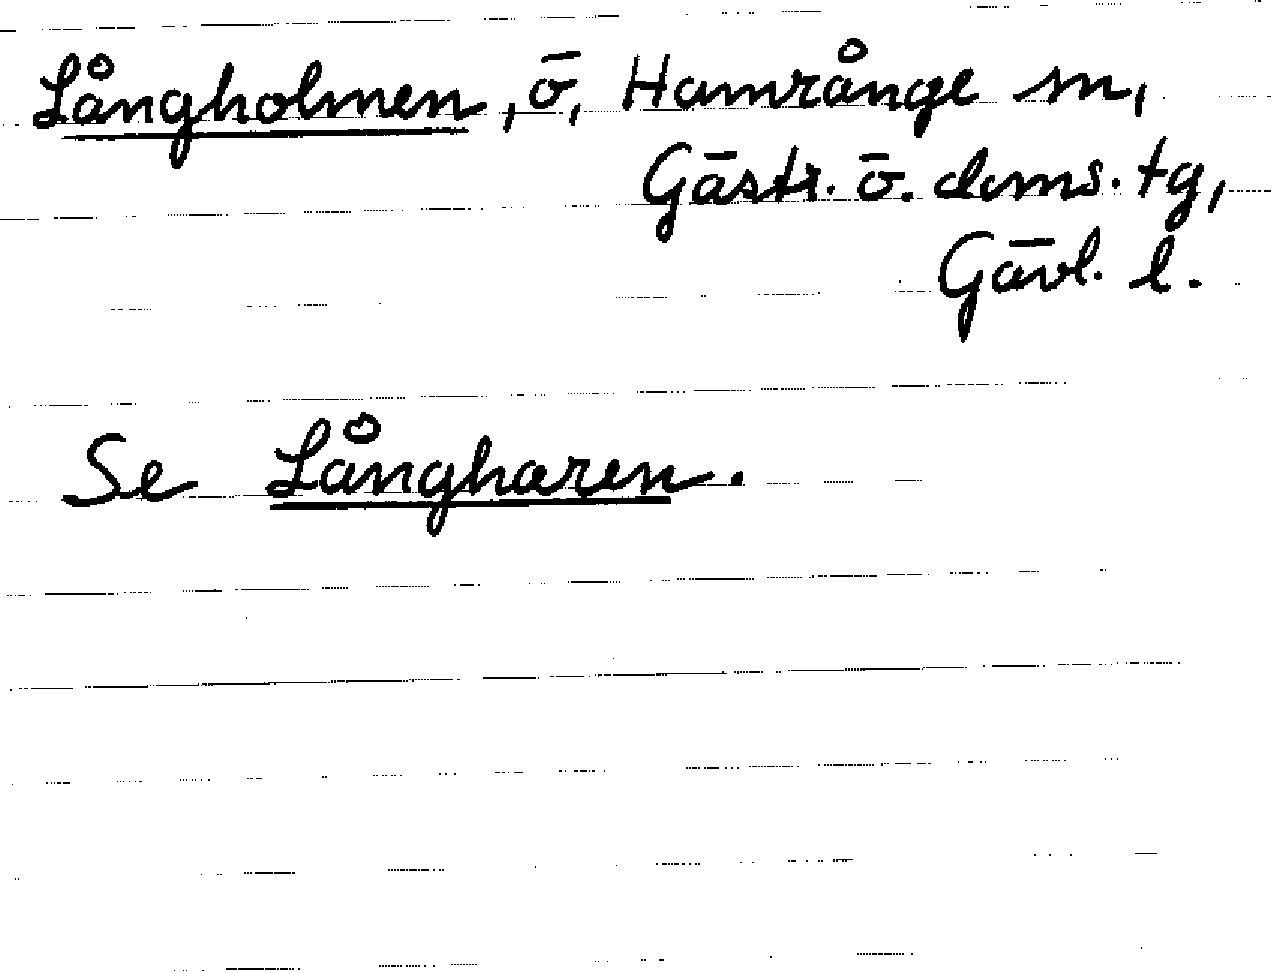 Långholmen, ö, Hamrånge sn,
Gästr. ö. doms. tg,
Gävl. l.
Se Långharen.